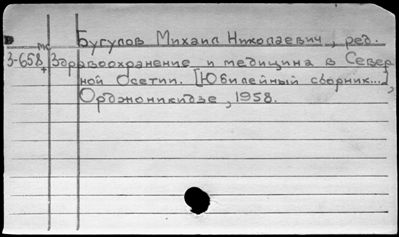 Бугулов Михаил Николаевич, ред.
3-658 Здравоохранение и медицина в Север
ной Осетии. [Юбилейный сборник...],
Орджоникидзе, 1958.